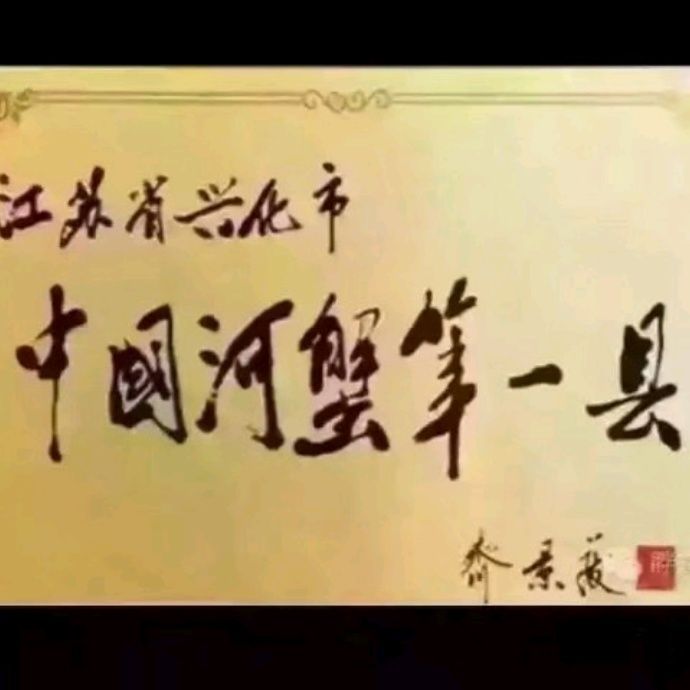 江苏省兴化市
中国河蟹第一县
齐景发